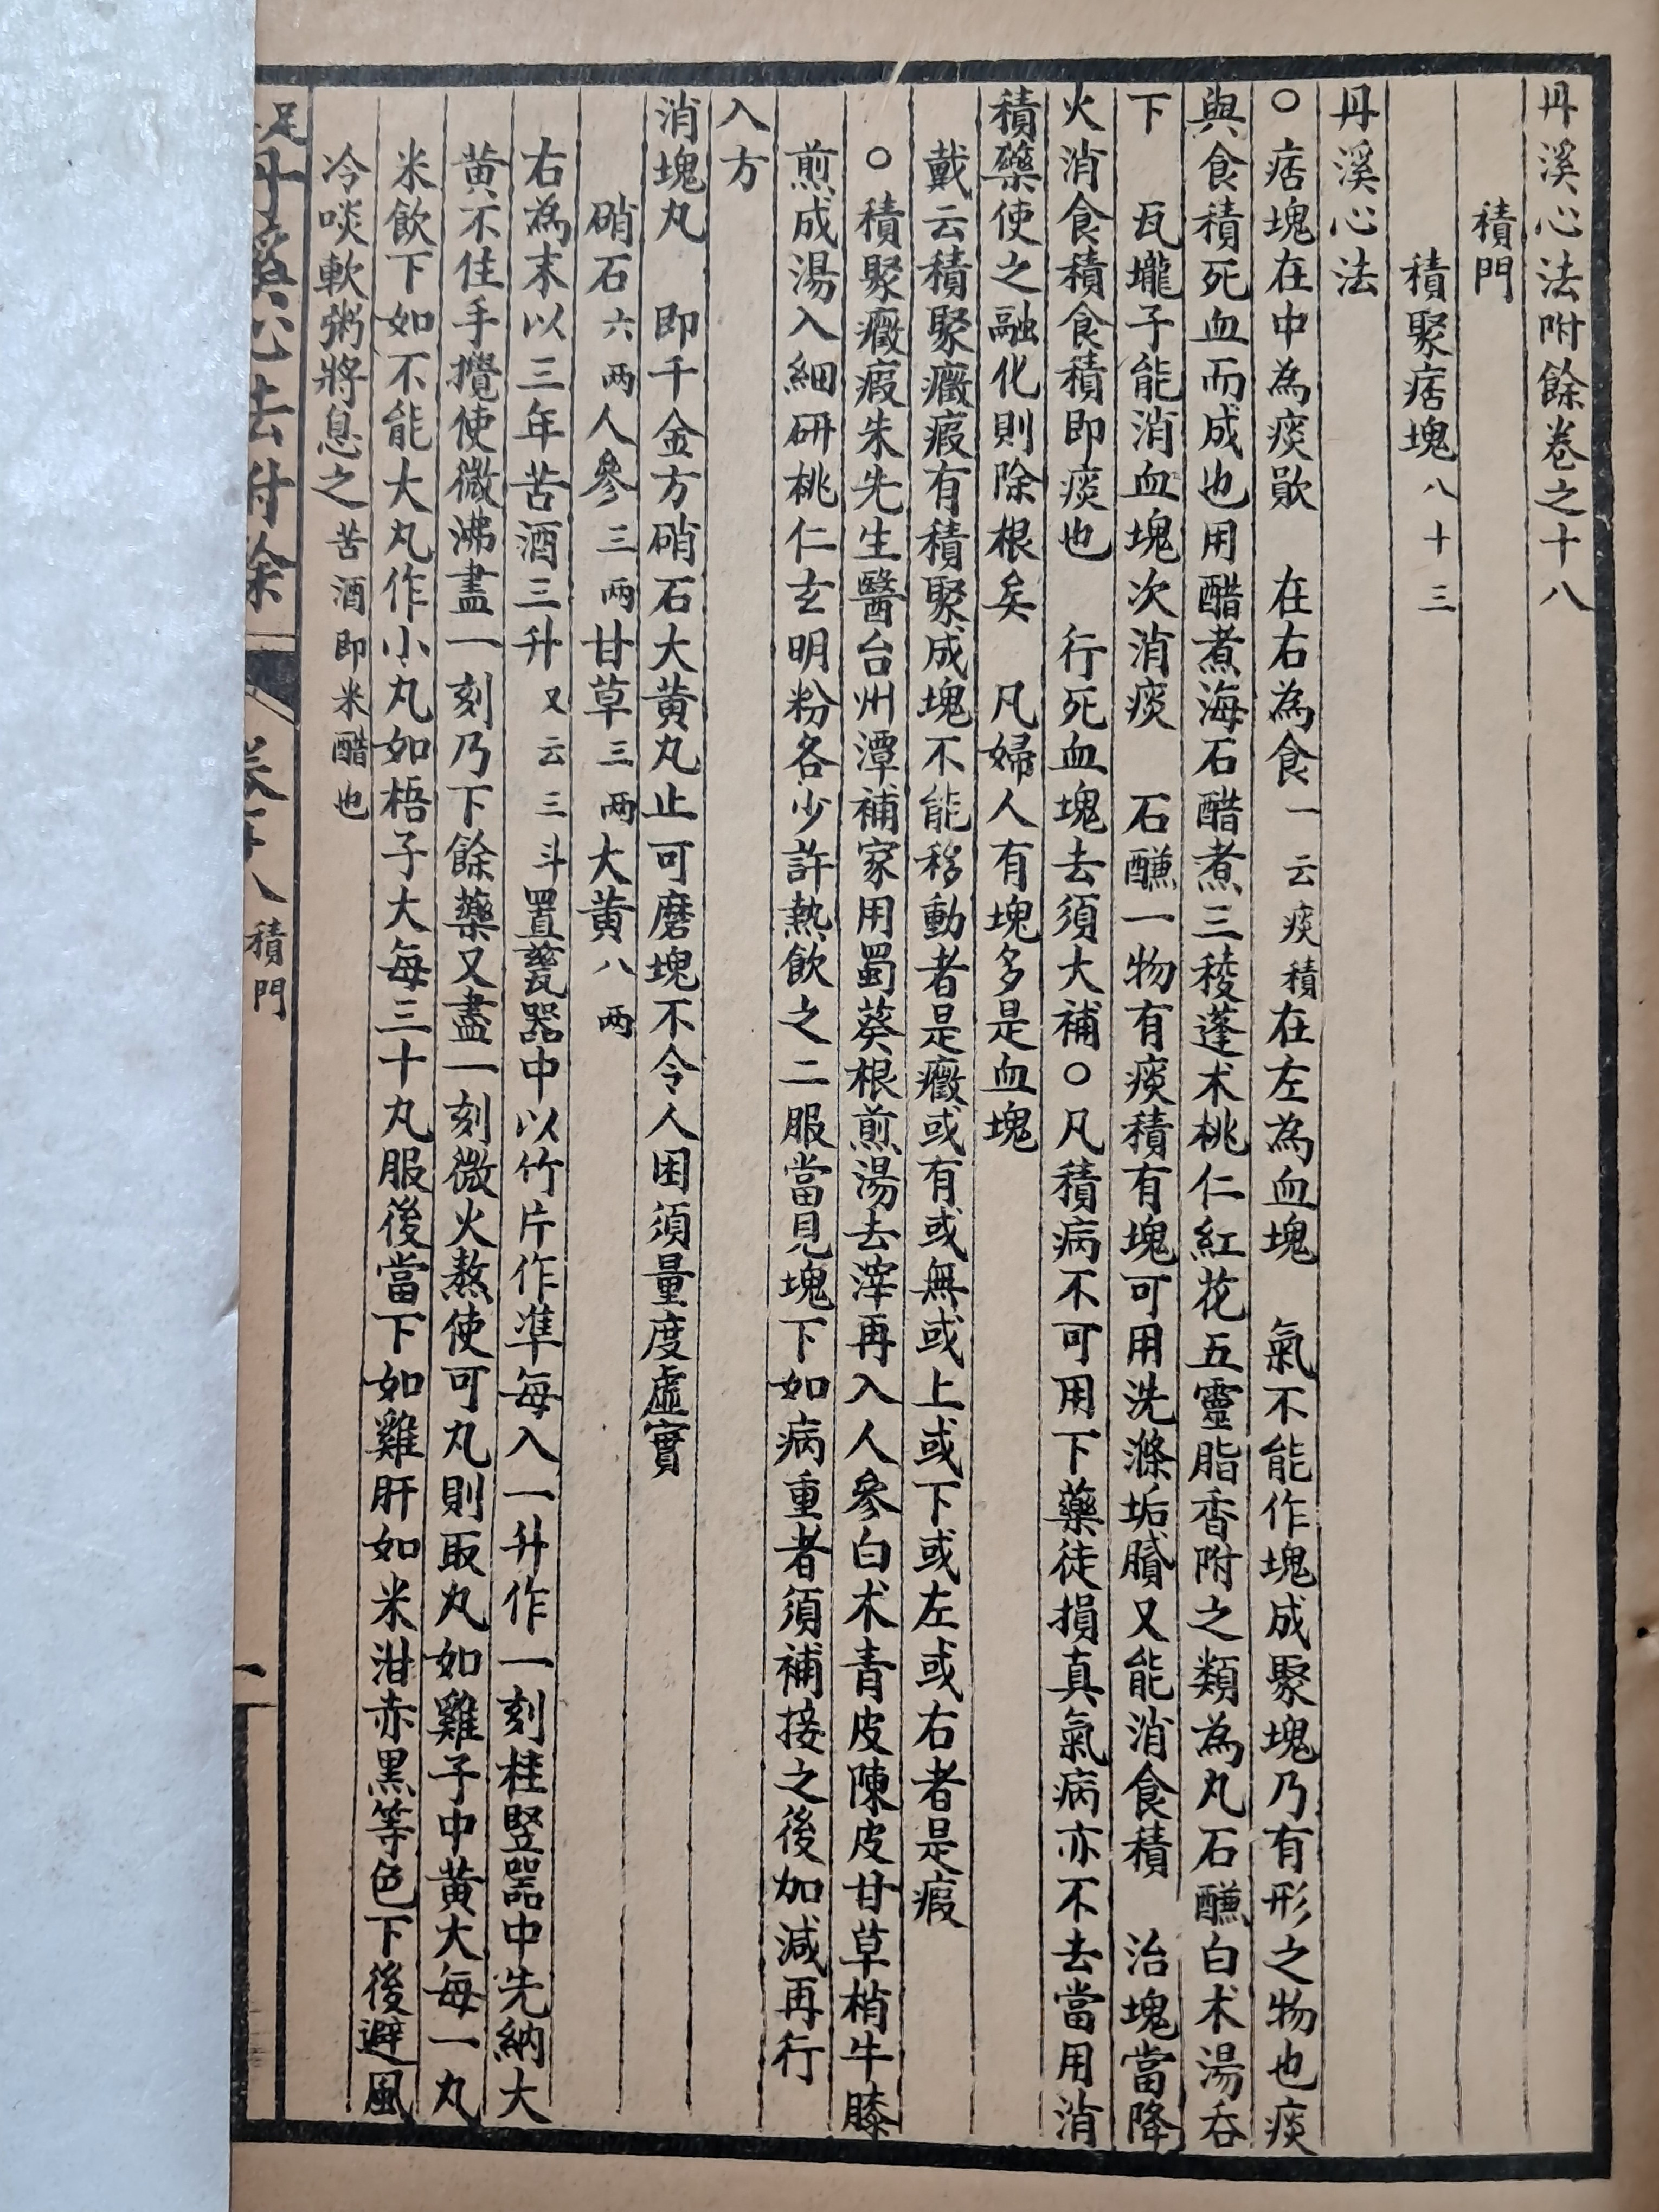 丹溪心法附餘卷之十八
積門
積聚痞塊八十三
丹溪心法
○痞塊在中為痰飲　在右為食一云痰積在左為血塊　氣不能作塊成聚塊乃有形之物也痰
與食積死血而成也用醋煮海石醋煮三稜蓬朮桃仁紅花五靈脂香附之類為丸石醶白朮湯吞
下　瓦壠子能消血塊次消痰　石醶一物有痰積有塊可用洗滌垢膩又能消食積　治塊當降
火消食積食積即痰也　行死血塊去須大補○凡積病不可用下藥徒損真氣病亦不去當用消
積藥使之融化則除根矣　凡婦人有塊多是血塊
戴云積聚癥瘕有積聚成塊不能移動者是癥或有或無或上或下或左或右者是瘕
○積聚癥瘕朱先生醫台州潭補家用蜀葵根煎湯去滓再入人參白朮青皮陳皮甘草梢牛膝
煎成湯入細研桃仁玄明粉各少許熱飲之二服當見塊下如病重者須補接之後加減再行
入方
消塊丸　即千金方硝石大黄丸止可磨塊不令人困須量度虛實
硝石六兩人參三兩甘草三兩大黄八兩
右為末以三年苦酒三升又云三斗置甆器中以竹片作準每入一升作一刻柱竪器中先納大
黄不住手攪使微沸盡一刻乃下餘藥又盡一刻微火熬使可丸則取丸如雞子中黄大每一丸
米飲下如不能大丸作小丸如梧子大每三十丸服後當下如雞肝如米泔赤黑等色下後避風
冷啖軟粥將息之苦酒即米醋也
丹溪心法附餘
卷十八
積門
一